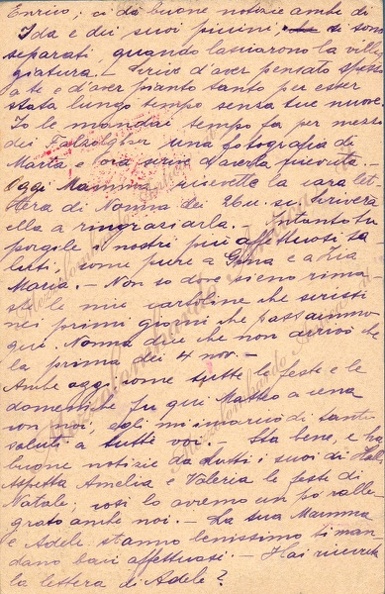 Enrico; ci dà buone notizie anche di
Ida e dei suoi piccini, di sono
separati quando lasciarono la ville
giatura. - Scrive d'aver pensato spesso
a te e d'aver pianto tanto per esser
stata lungo tempo senza tue nuove.
Io le mandai tempo fa per mezzo
dei una fotografia di
Maria e ora scrive d'averla ricevuta. -
Oggi Mamma ricevette la cara let-
tera di Nonna dei 26 u. s. scriverà
ella a ringraziarla. - Intanto tu
porgile i nostri più affettuosi sa
luti, come pure a Gina e a zia
Maria. - Non so dove sieno rima
ste le mie cartoline che scrissi
nei primi giorni che passammo
qui. Nonna dice che non arrivò che
la prima dei 4 nov. -
Anche oggi come tutte le feste e le
domeniche fu qui Matteo a cena
con noi; egli mi incaricò di tanti
saluti a tutti voi. - Sta bene, e ha
buone notizie da tutti i suoi di Hall.
Aspetta Amelia e Valeria le feste di
Natale, così lo avremo un pò ralle-
grato anche noi. - La tua Mamma
e Adele stanno benissimo ti man-
dano baci affettuosi. - Hai ricevuta
la lettera di Adele?